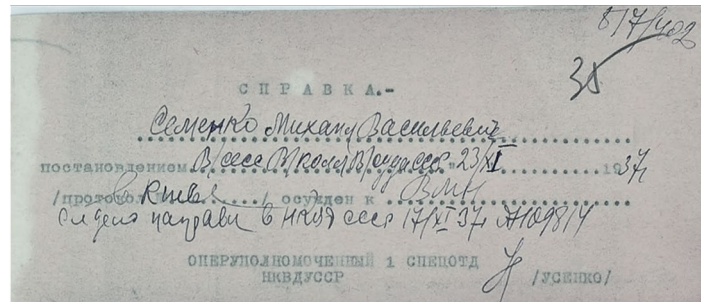 8/7/402
35
СПРАВКА.-
Семенко Михаил Васильевич
постановлением В/сесс В/колл В/суда ссср "23/X 1937г
/протокол в Киеве / осужден к ВМН
направл в НКВД ссср 17/XI 37г №109814
ОПЕРУПОЛНОМОЧЕННЫЙ 1 СПЕЦОТД
НКВДУССР /УСЕНКО/